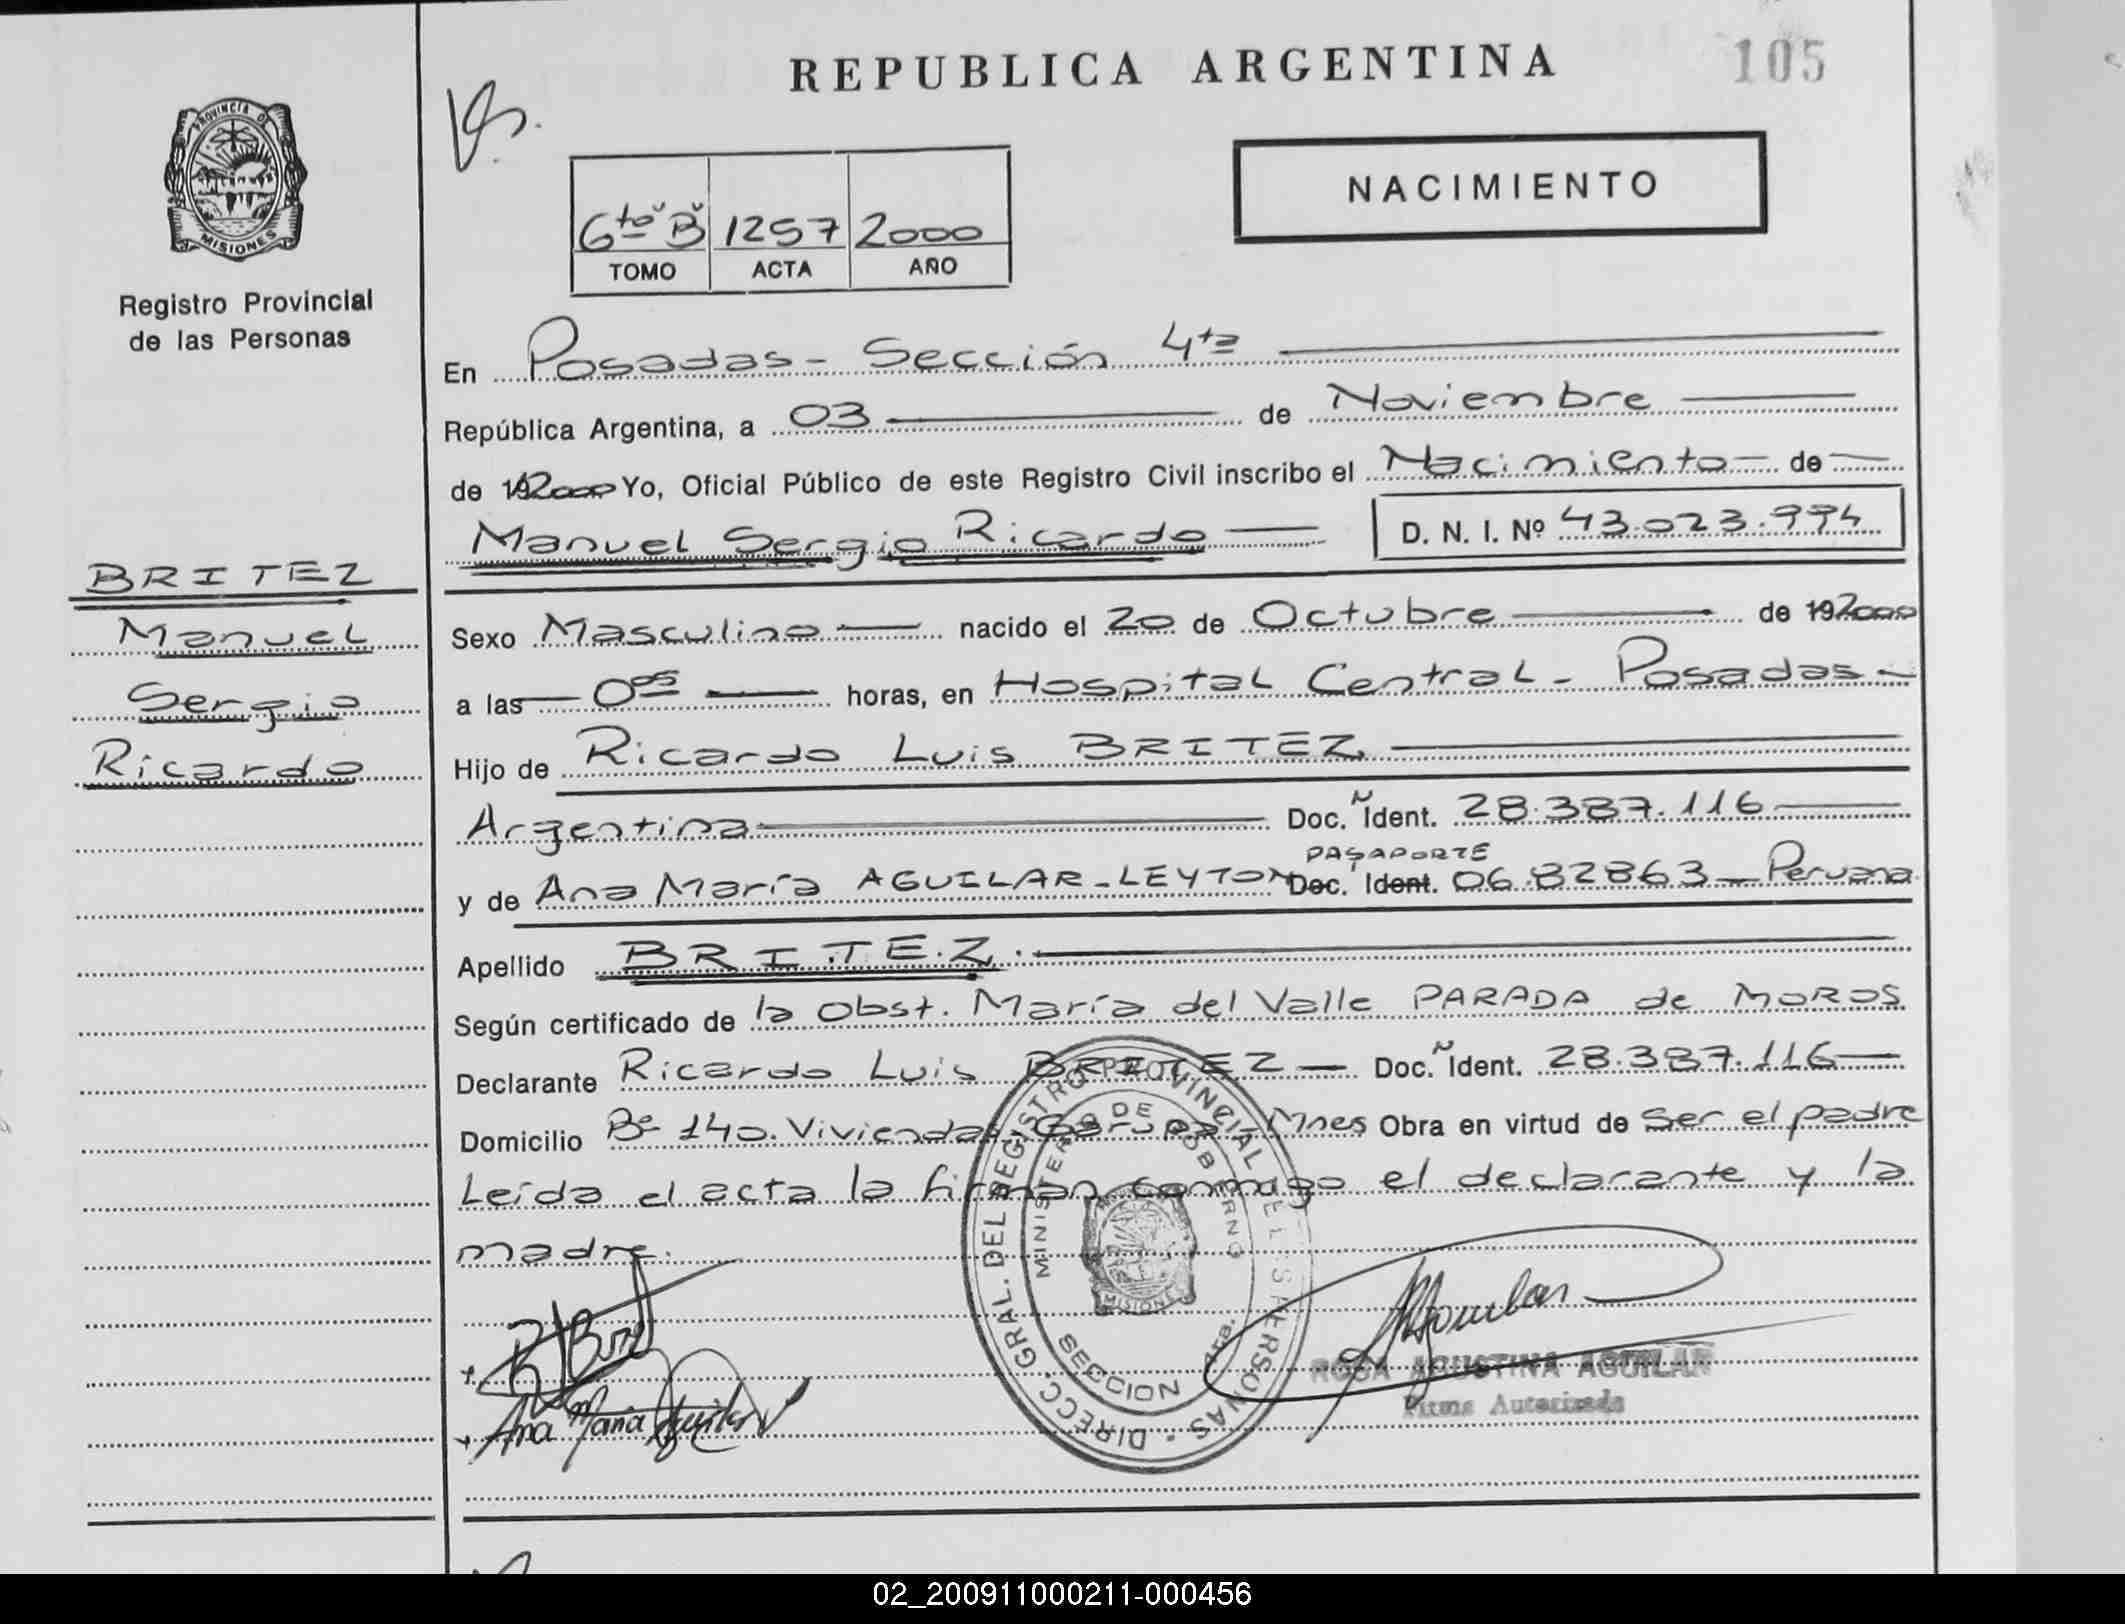 REPUBLICA ARGENTINA
105
PROVINCIA DE
MISIONES
Registro Provincial
de las Personas
NACIMIENTO
6to "B" 1257 2000
TOMO ACTA AÑO
En Posadas - Sección 4ta
República Argentina, a 03 de Noviembre
de 192000 Yo, Oficial Público de este Registro Civil inscribo el Nacimiento de
Manuel Sergio Ricardo D. N. I. Nº 43.023.994
BRITEZ
Manuel
Sergio
Ricardo
Sexo Masculino nacido el 20 de Octubre de 192000
a las 0:05 horas, en Hospital Central - Posadas -
Hijo de Ricardo Luis BRITEZ
Argentina Doc. Ident. 28.387.116
PASAPORTE
y de Ana María AGUILAR-LEYTON Doc. Ident. 0682863 - Peruana
Apellido BRITEZ.
Según certificado de la Obst. María del Valle PARADA de MOROS
Declarante Ricardo Luis BRITEZ - Doc. Ident. 28.387.116
Domicilio Bº 140. Viviendas - Garupá - Mnes Obra en virtud de ser el padre
Leída el acta la firman conmigo el declarante y la
madre.
DIRECC. GRAL. DEL REGISTRO PROVINCIAL DE LAS PERSONAS
MINISTERIO DE GOBIERNO
MISIONES
SECCION 4ta.
ROSA AGUSTINA AGUILAR
Firma Autorizada
Ana Maria Aguilar
02_200911000211-000456